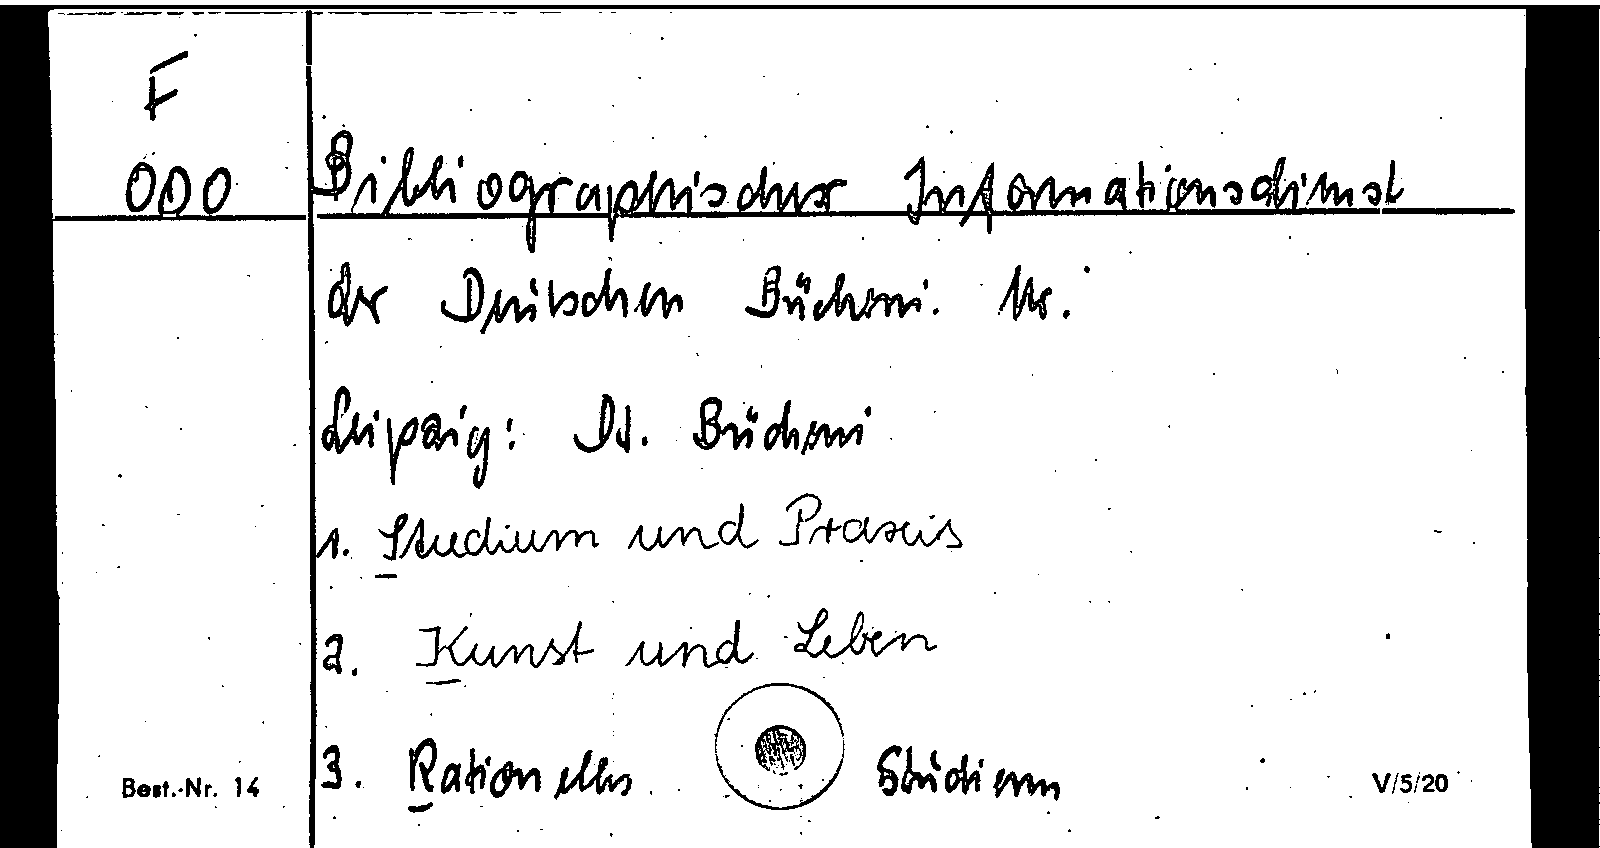 F
000 Bibliographischer Informationsdienst
der Deutschen Bücherei. Nr.
Leipzig: Dt. Bücherei
1. Studium und Praxis
2. Kunst und Leben
3. Rationelles Studieren
Best.-Nr. 14 V/5/20